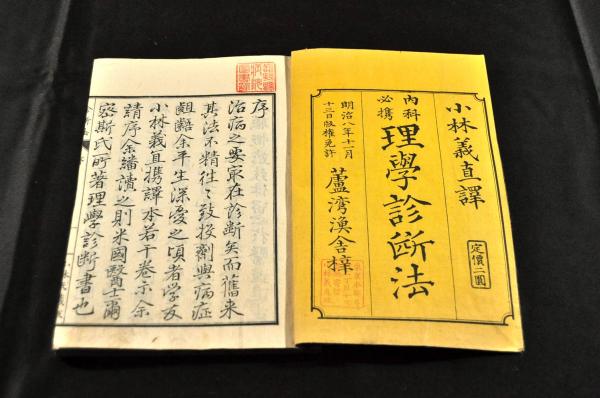 小林義直譯
定價二圓
內科必携
理學診斷法
蘆湾漁舎梓
明治八年十一月
十三日版權免許
序
治病之要最在診斷矣而舊来
其法不精徃〻致投劑與病症
齟齬余平生深憂之頃者学友
小林義直携譯本若干卷示余
請序余繙讀之則米國醫士爾
斯氏所著理學診斷書也